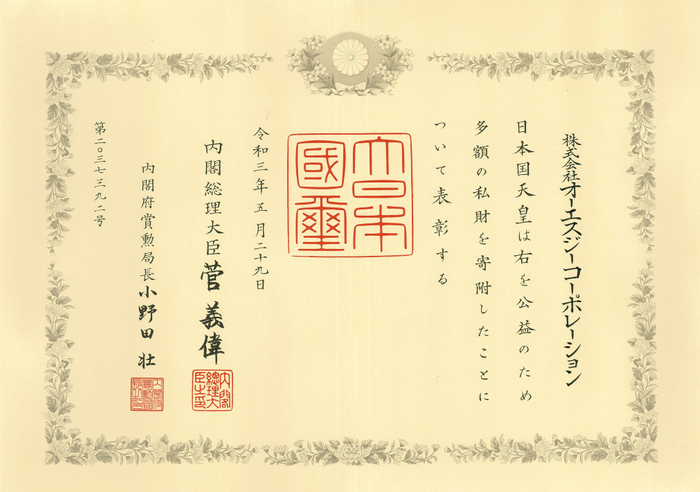 株式会社オーエスジーコーポレーション
日本国天皇は右を公益のため
多額の私財を寄附したことに
ついて表彰する
大日本
國璽
令和三年五月二十九日
内閣総理大臣 菅義偉
内閣総理大臣之印
内閣府賞勲局長 小野田壮
第二〇三七三九二号